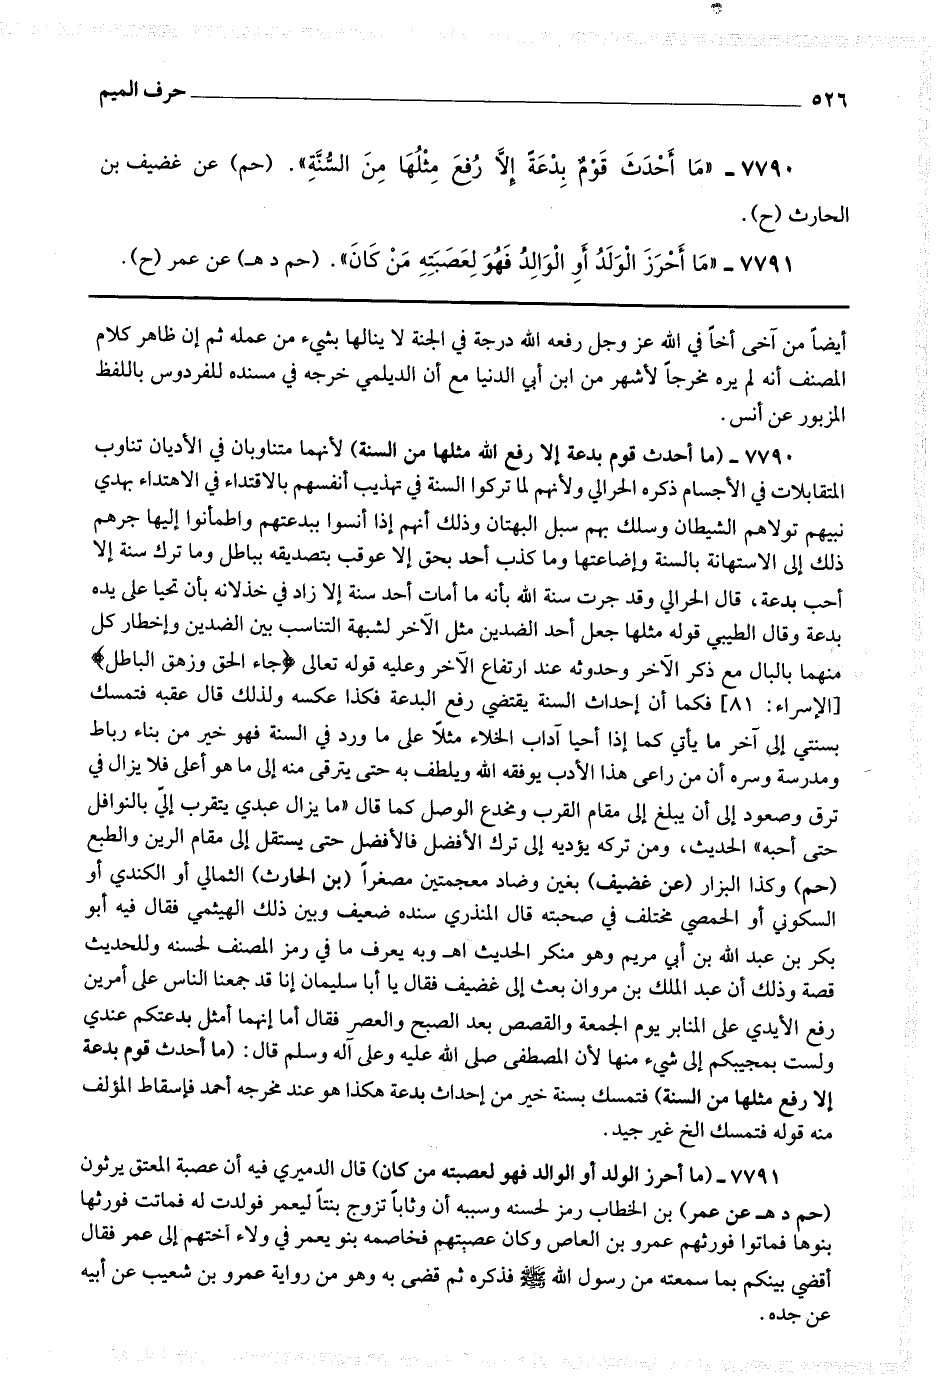 ٥٢٦ حرف الميم
٧٧٩٠ - «مَا أَحْدَثَ قَوْمٌ بِدْعَةً إِلَّا رُفِعَ مِثْلُهَا مِنَ السُّنَّةِ». (حم) عن غضيف بن
الحارث (ح).
٧٧٩١ - «مَا أَحْرَزَ الْوَلَدُ أَوِ الْوَالِدُ فَهُوَ لِعَصَبَتِهِ مَنْ كَانَ». (حم د هـ) عن عمر (ح).
أيضاً من آخى أخاً في الله عز وجل رفعه الله درجة في الجنة لا ينالها بشيء من عمله ثم إن ظاهر كلام
المصنف أنه لم يره مخرجاً لأشهر من ابن أبي الدنيا مع أن الديلمي خرجه في مسنده للفردوس باللفظ
المزبور عن أنس.
٧٧٩٠ - (ما أحدث قوم بدعة إلا رفع الله مثلها من السنة) لأنهما متناوبان في الأديان تناوب
المتقابلات في الأجسام ذكره الحرالي ولأنهم لما تركوا السنة في تهذيب أنفسهم بالاقتداء في الاهتداء بهدي
نبيهم تولاهم الشيطان وسلك بهم سبل البهتان وذلك أنهم إذا أنسوا ببدعتهم واطمأنوا إليها جرهم
ذلك إلى الاستهانة بالسنة وإضاعتها وما كذب أحد بحق إلا عوقب بتصديقه بباطل وما ترك سنة إلا
أحب بدعة، قال الحرالي وقد جرت سنة الله بأنه ما أمات أحد سنة إلا زاد في خذلانه بأن تحيا على يده
بدعة وقال الطيبي قوله مثلها جعل أحد الضدين مثل الآخر لشبهة التناسب بين الضدين وإخطار كل
منهما بالبال مع ذكر الآخر وحدوثه عند ارتفاع الآخر وعليه قوله تعالى ﴿جاء الحق وزهق الباطل﴾
[الإسراء: ٨١] فكما أن إحداث السنة يقتضي رفع البدعة فكذا عكسه ولذلك قال عقبه فتمسك
بسنتي إلى آخر ما يأتي كما إذا أحيا آداب الخلاء مثلاً على ما ورد في السنة فهو خير من بناء رباط
ومدرسة وسره أن من راعى هذا الأدب يوفقه الله ويلطف به حتى يترقى منه إلى ما هو أعلى فلا يزال في
ترق وصعود إلى أن يبلغ إلى مقام القرب ومخدع الوصل كما قال «ما يزال عبدي يتقرب إليّ بالنوافل
حتى أحبه» الحديث، ومن تركه يؤديه إلى ترك الأفضل فالأفضل حتى يستقل إلى مقام الرين والطبع
(حم) وكذا البزار (عن غضيف) بغين وضاد معجمتين مصغراً (بن الحارث) الثمالي أو الكندي أو
السكوني أو الحمصي مختلف في صحبته قال المنذري سنده ضعيف وبين ذلك الهيثمي فقال فيه أبو
بكر بن عبد الله بن أبي مريم وهو منكر الحديث اهـ وبه يعرف ما في رمز المصنف لحسنه وللحديث
قصة وذلك أن عبد الملك بن مروان بعث إلى غضيف فقال يا أبا سليمان إنا قد جمعنا الناس على أمرين
رفع الأيدي على المنابر يوم الجمعة والقصص بعد الصبح والعصر فقال أما إنهما أمثل بدعتكم عندي
ولست بمجيبكم إلى شيء منها لأن المصطفى صلى الله عليه وعلى آله وسلم قال: (ما أحدث قوم بدعة
إلا رفع مثلها من السنة) فتمسك بسنة خير من إحداث بدعة هكذا هو عند مخرجه أحمد فإسقاط المؤلف
منه قوله فتمسك الخ غير جيد.
٧٧٩١ - (ما أحرز الولد أو الوالد فهو لعصبته من كان) قال الدميري فيه أن عصبة المعتق يرثون
(حم د هـ عن عمر) بن الخطاب رمز لحسنه وسببه أن وثاباً تزوج بنتاً ليعمر فولدت له فماتت فورثها
بنوها فماتوا فورثهم عمرو بن العاص وكان عصبتهم فخاصمه بنو يعمر في ولاء آختهم إلى عمر فقال
أقضي بينكم بما سمعته من رسول الله ﷺ فذكره ثم قضى به وهو من رواية عمرو بن شعيب عن أبيه
عن جده.